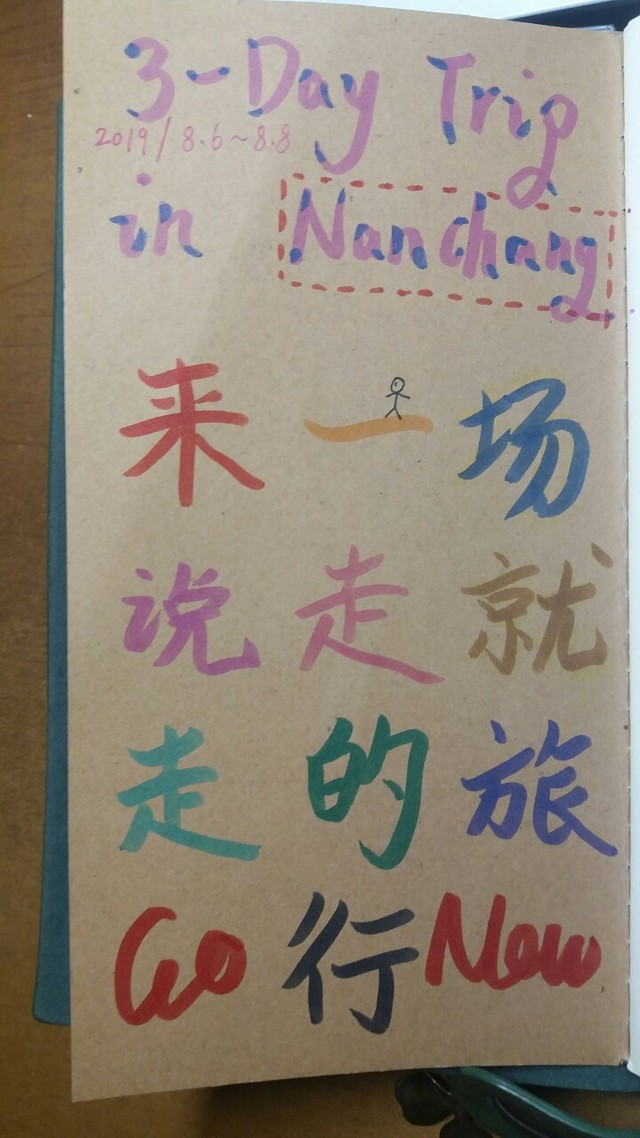 3-Day Trip
2019/8.6~8.8
in Nanchang
来一场
说走就
走的旅
Go 行 Now